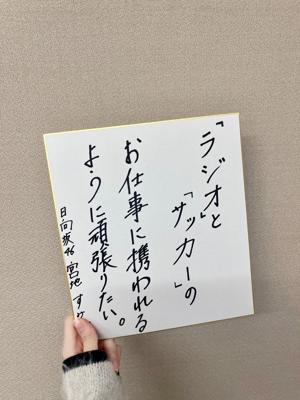 「ラジオ」と
「サッカー」の
お仕事に携われる
ように頑張りたい。
日向坂46 宮地 すみれ